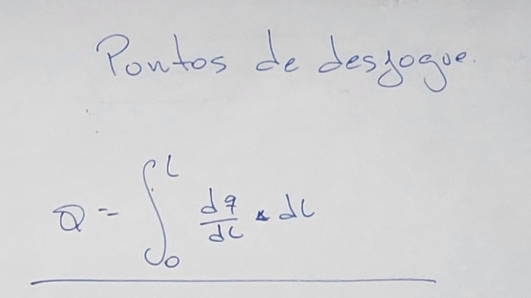 Pontos de desfogue.
Q = ∫₀ᴸ dq/dL * dL